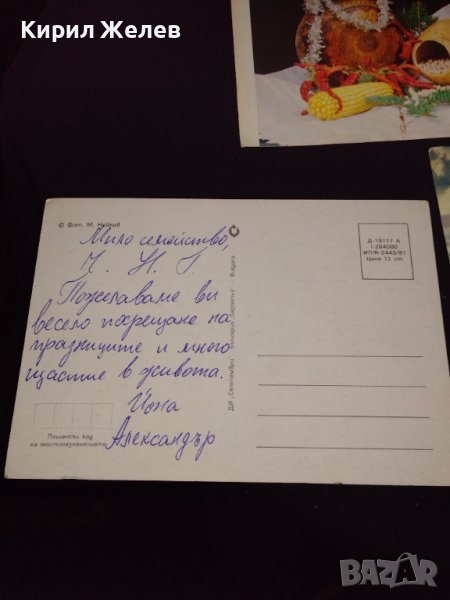 Кирил Желев
© Фот. М. Нейков
Мило семейство,
Ч. Н. Г.
Пожелаваме ви
весело посрещане на
празниците и много
щастие в живота.
Йона
Александър
Пощенски код
на местоназначението
ДИ „Септември“ Bulgaria
Д-19117 А
I-284000
ВПЖ-2443/81
Цена 12 ст.
BAZAR